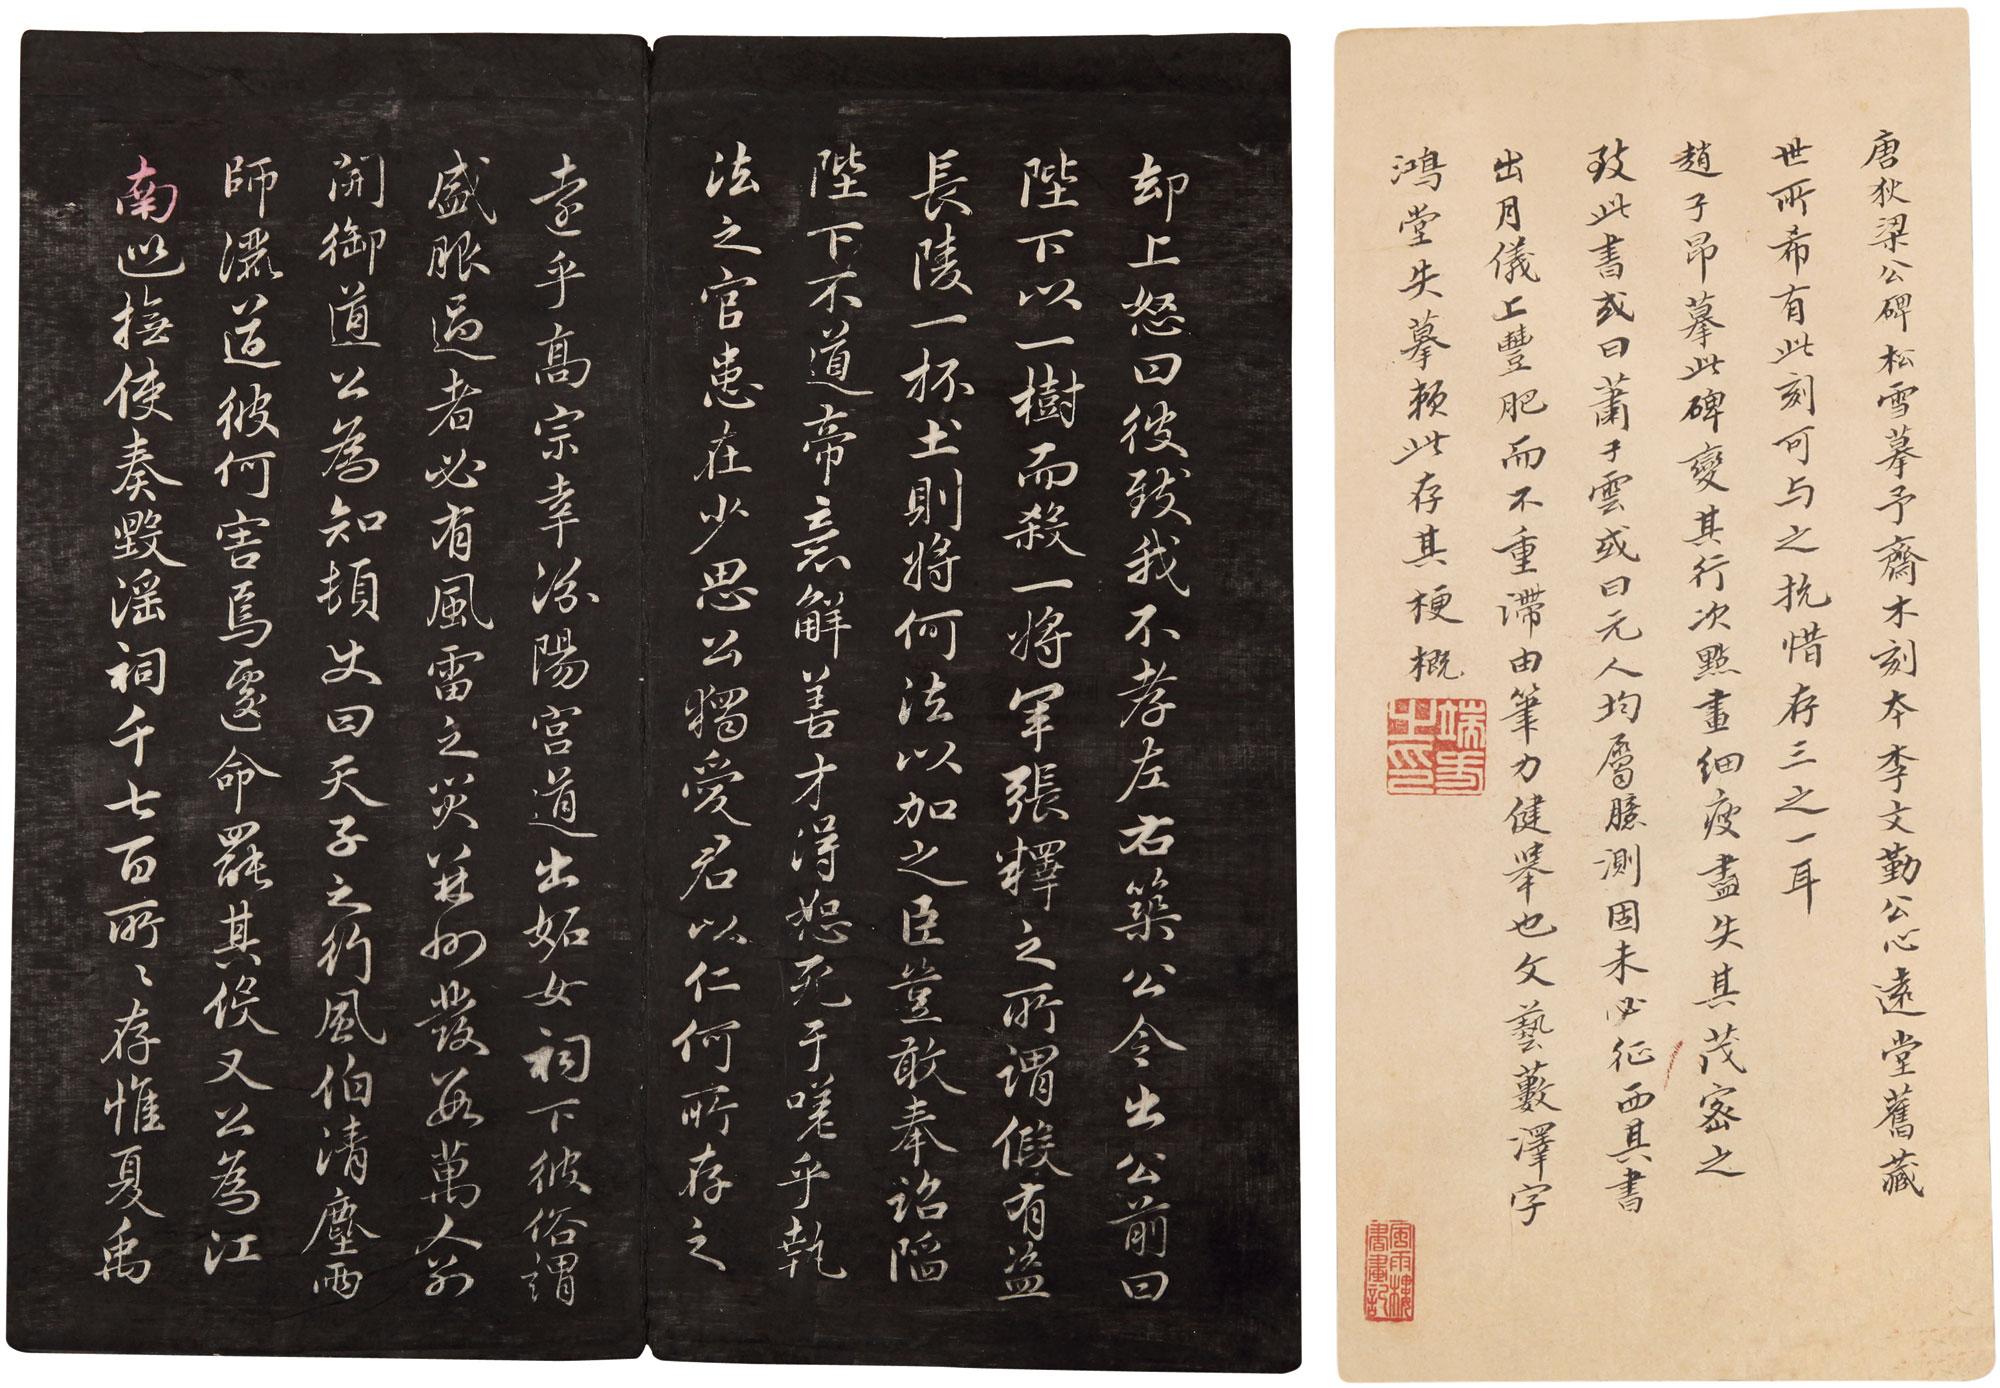 唐狄梁公碑松雪摹予齋木刻本李文勤公心遠堂舊藏
世所希有此刻可与之抗惜存三之一耳
趙子昂摹此碑變其行次點畫細瘦盡失其茂密之
致此書或曰蕭子雲或曰元人均屬臆測固未必征西其書
出月儀上豐肥而不重滯由筆力健舉也文藝藪澤字
鴻堂失摹賴此存其梗概
風雨樓書畫記
却上怒曰彼致我不孝左右築公令出公前曰
陛下以一樹而殺一將軍張釋之所謂假有盗
長陵一杯土則將何法以加之臣豈敢奉詔陷
陛下不道帝意解善才得恕死于嗟乎執
法之官患在少恩公獨愛君以仁何所存之
遠乎高宗幸汾陽宫道出妬女祠下彼俗謂
盛服過者必有風雷之災并州發數萬人别
開御道公為知頓史曰天子之行風伯清塵雨
師灑道彼何害焉遽命罷其役又公為江
南巡撫使奏毀淫祠千七百所〻存惟夏禹